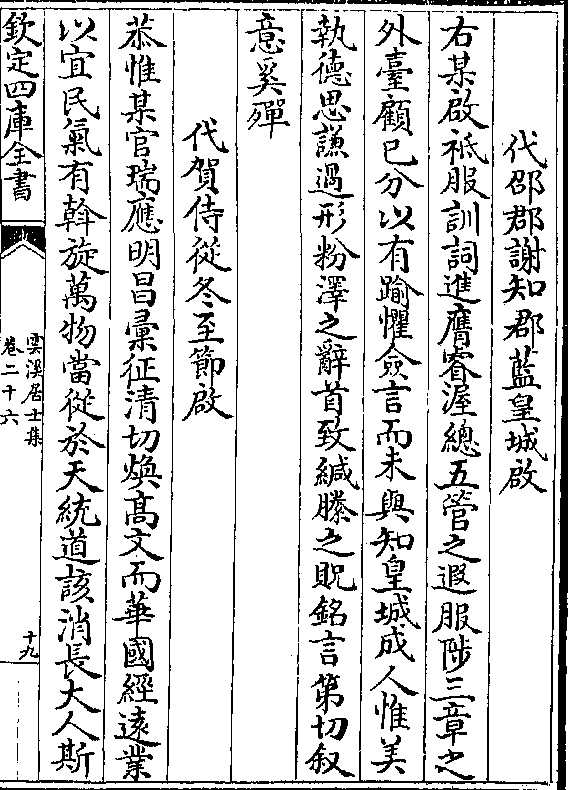 代邵郡謝知郡藍皇城啟
右某啟祇服訓詞進膺睿渥總五管之遐服陟三章之
外臺顧已分以有踰懼僉言而未與知皇城成人惟美
執德思謙過形粉澤之辭首致緘縢之貺銘言第切叙
意奚殫
代賀侍從冬至節啟
恭惟某官瑞應明昌彚征清切煥高文而華國經遠業
以宜民氣有斡旋萬物當從於天統道該消長大人斯
欽定四庫全書
雲溪居士集
卷二十六
十九